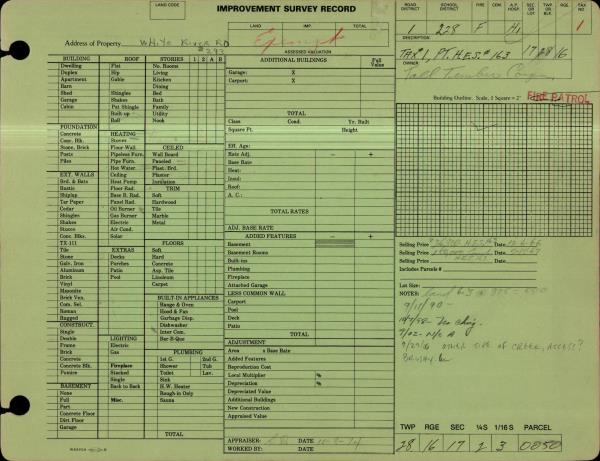 IMPROVEMENT SURVEY RECORD
LAND
IMP.
TOTAL
Address of Property White River RD
ASSESSED VALUATION
ROAD DISTRICT
SCHOOL DISTRICT
FIRE
CEM.
SEC OR LOT
TWP OR BLK
RGE.
TAX NO
228 F Hi 1
DESCRIPTION
TAX #1, PT. H.E.S. #163 17 28 16
OWNER
Tall Timber
Building Outline. Scale, 1 Square = 2'
FIRE PATROL
BUILDING ROOF STORIES 1 2 A B
Dwelling Flat No. Rooms
Duplex Hip Living
Apartment Gable Kitchen
Barn Dining
Shed Shingles Bed
Garage Shakes Bath
Cabin Pat Shingle Family
Built up Utility
Baff Nook
FOUNDATION
Concrete HEATING
Conc. Blk. Stoves CEILED
Stone, Brick Floor Wall Wall Board
Posts Pipeless Furn. Paneled
Piles Pipe Furn. Plast. Brd.
Hot Water Plaster
EXT. WALLS Ceiling Insulation
Brd. & Bats Heat Pump
Rustic Floor Rad. TRIM
Shiplap Base B. Rad. Soft
Tar Paper Panel Rad. Hardwood
Cedar Oil Burner Tile
Shingles Gas Burner Marble
Shakes Electric Metal
Stucco Air Cond.
Conc. Blks. Solar FLOORS
TX-111 Soft
Tile EXTRAS Hard
Stone Decks Concrete
Galv. Iron Porches Asp. Tile
Aluminum Patio Linoleum
Brick Pool Carpet
Vinyl
Masonite
Brick Ven. BUILT-IN APPLIANCES
Com. Sel. Range & Oven
Roman Hood & Fan
Ragged Garbage Disp.
CONSTRUCT. Dishwasher
Single Inter Com.
Double LIGHTING Bar-B-Que
Frame Electric
Brick Gas PLUMBING
Concrete 1st G. 2nd G.
Concrete Blk. Fireplace Shower Tub
Pumice Stacked Toilet Lav.
Single Sink
BASEMENT Back to Back H.W. Heater
None Rough-in Only
Full Misc. Sauna
Part
Concrete Floor
Dirt Floor
Garage
TOTAL
ADDITIONAL BUILDINGS Full Value
Garage: X
Carport: X
TOTAL
Class Cond. Yr. Built
Square Ft. Height
Eff. Age:
Rate Adj. − +
Base Rate
Heat:
Insul:
Roof:
A. C.:
TOTAL RATES
ADJ. BASE RATE
ADDED FEATURES − +
Basement
Basement Rooms
Built-ins
Plumbing
Fireplace
Attached Garage
LESS COMMON WALL
Carport
Pool
Deck
Patio
TOTAL
ADJUSTMENT
Area x Base Rate
Added Features
Reproduction Cost
Local Multiplier %
Depreciation %
Depreciated Value
Additional Buildings
New Construction
Appraised Value
APPRAISER: DATE
WORKED BY: DATE
Selling Price Date
Selling Price Date
Selling Price Date
Includes Parcels #
Lot Size
NOTES:
9/11/90 -
10/7/98 - No Chng.
7/02 - N/C A
9/29/10 OTHER SIDE OF CREEK, ACCESS?
TWP RGE SEC ¼S 1/16 S PARCEL
28 16 17 2 3 0050